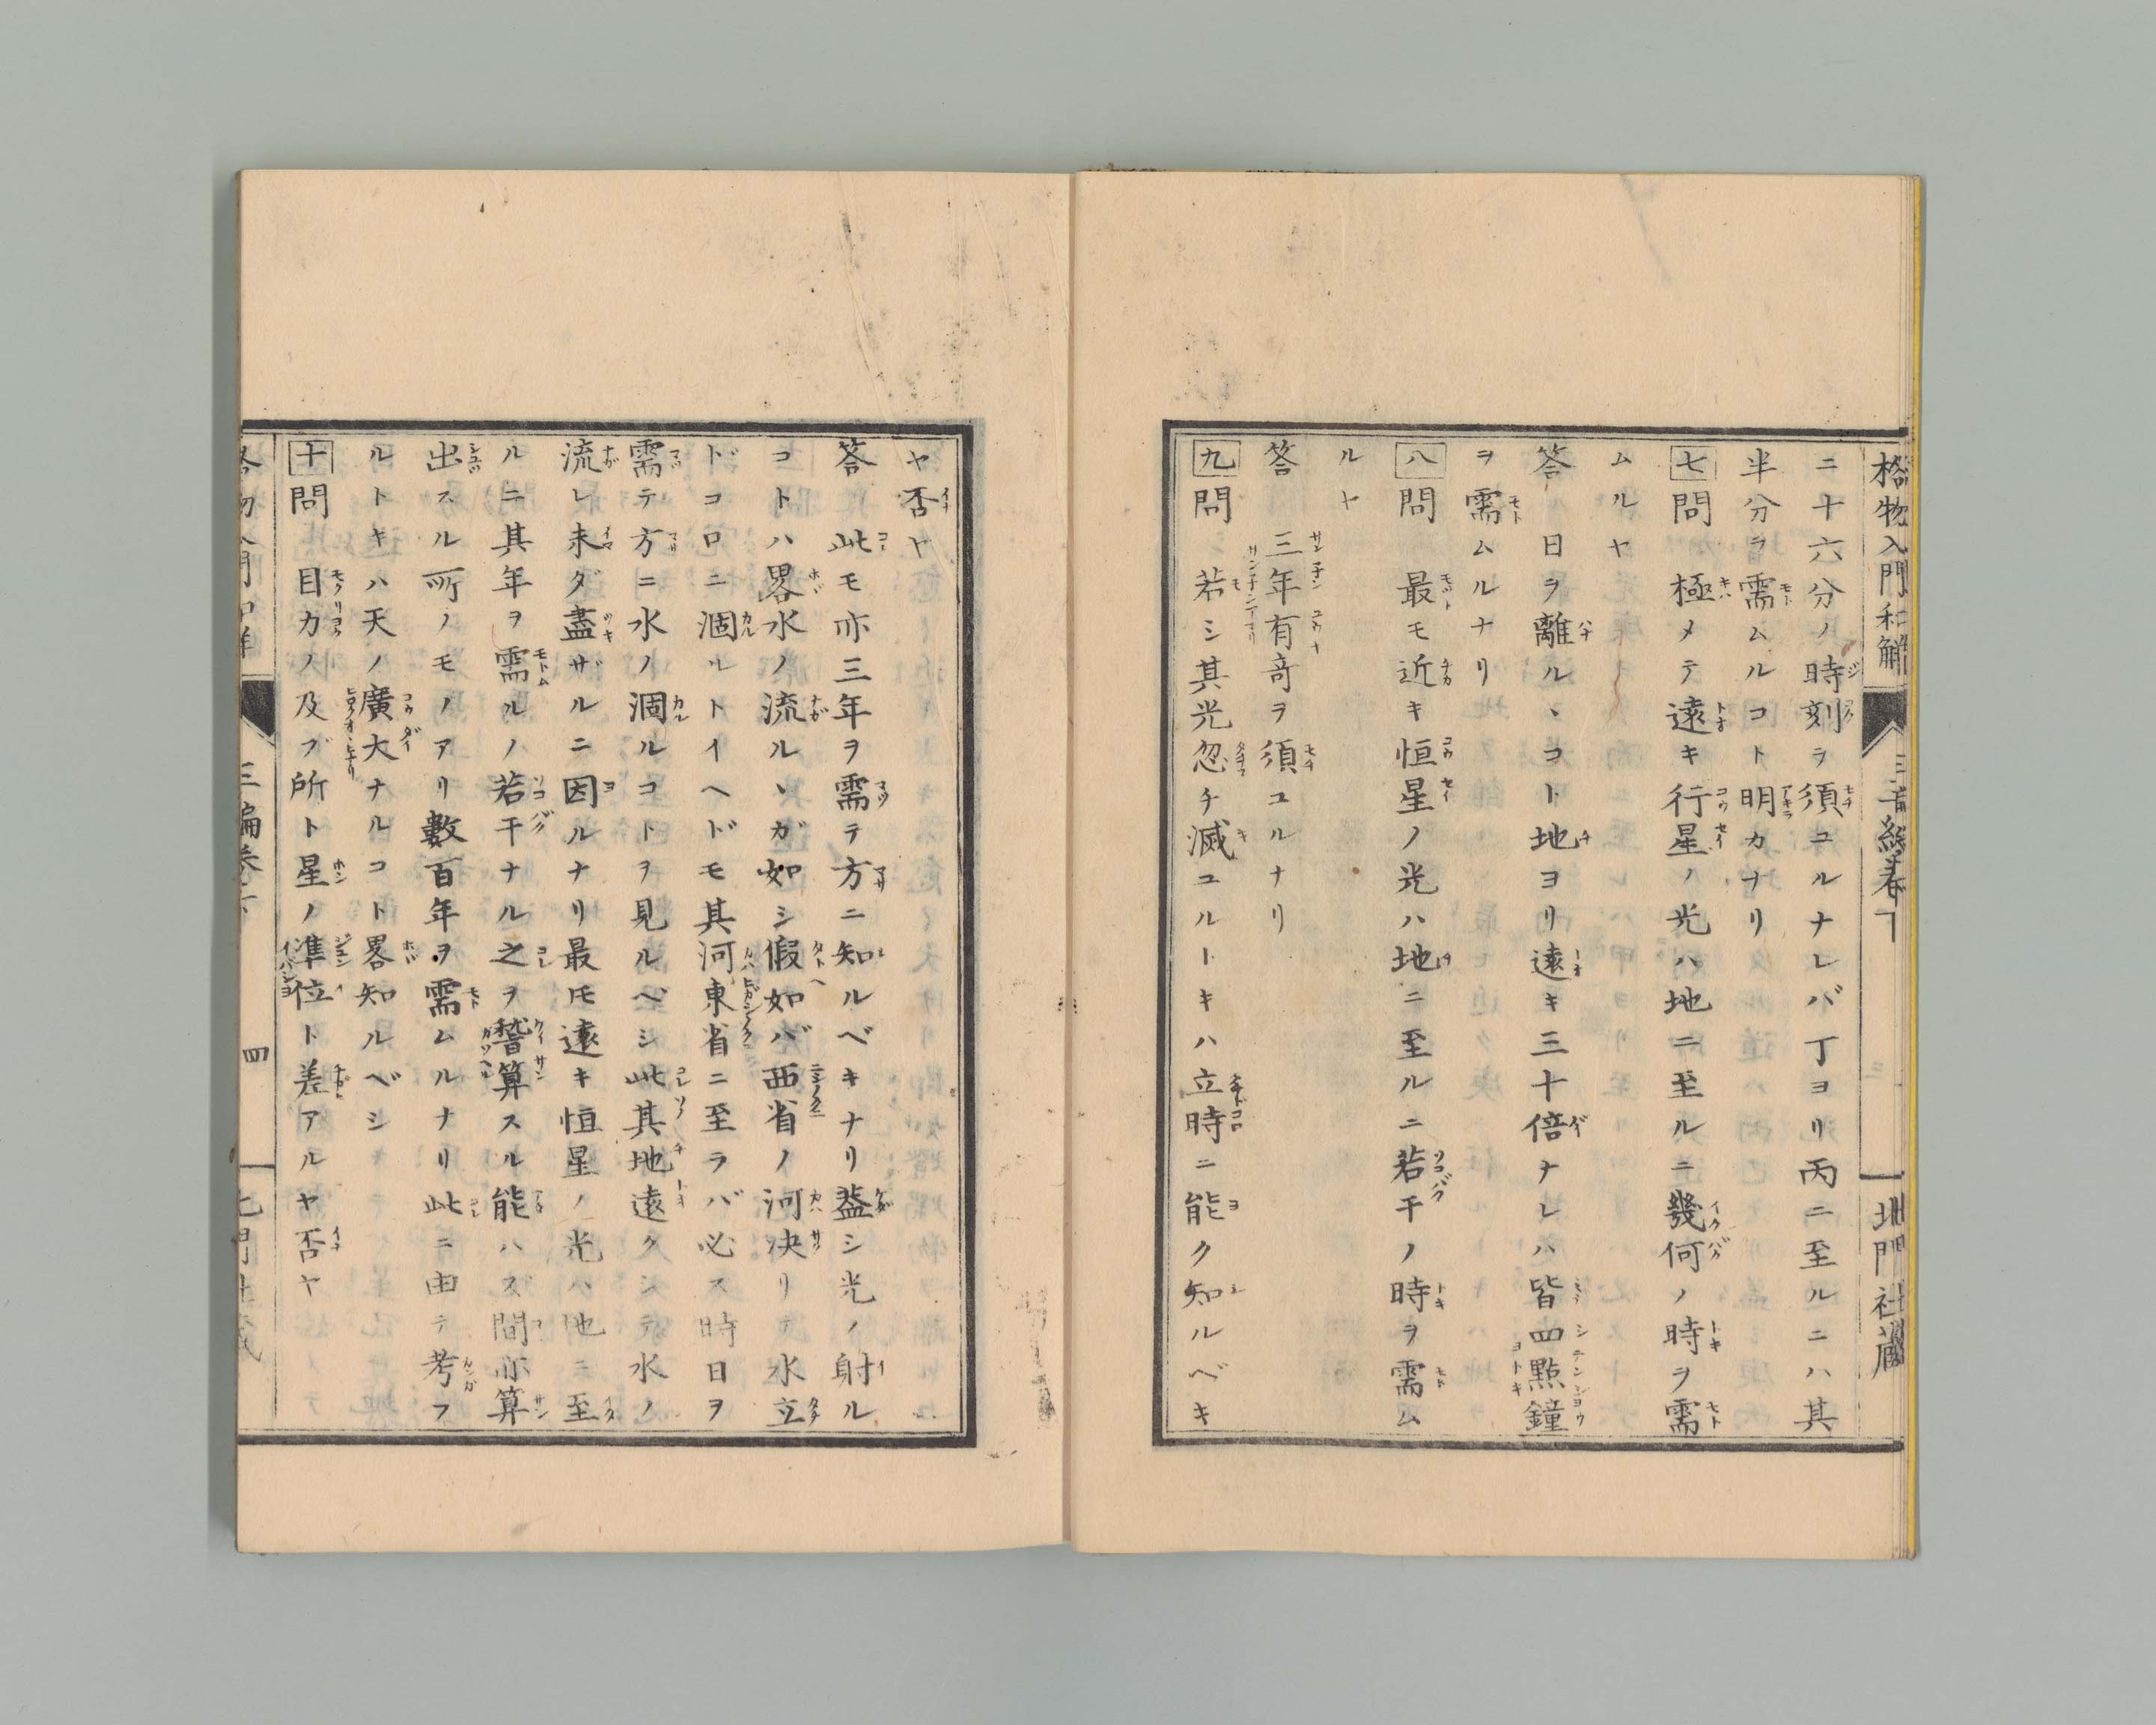 格物入門和解
三編巻下
北門社蔵
ニ十六分ノ時刻ヲ須ユルナレバ丁ヨリ丙ニ至ルニハ其
半分ヲ需ムルコト明カナリ
七問 極メテ遠キ行星ノ光ハ地ニ至ルニ幾何ノ時ヲ需
ムルヤ
答 日ヲ離ルヽコト地ヨリ遠キ三十倍ナレハ皆四點鐘
ヲ需ムルナリ
八問 最モ近キ恒星ノ光ハ地ニ至ルニ若干ノ時ヲ需ム
ルヤ
答 三年有奇ヲ須ユルナリ
九問 若シ其光忽チ滅ユルトキハ立時ニ能ク知ルベキ
ヤ否ヤ
答 此モ亦三年ヲ需テ方ニ知ルベキナリ葢シ光ノ射ル
コトハ畧水ノ流ルヽガ如シ假如バ西省ノ河决リテ水立
ドコロニ涸ルトイヘドモ其河東省ニ至ラバ必ス時日ヲ
需テ方ニ水ノ涸ルコトヲ見ルベシ此其地遠クシテ水ノ
流レ未ダ盡ザルニ因ルナリ最モ遠キ恒星ノ光ハ地ニ至
ルニ其年ヲ需ルノ若干ナル之ヲ稽算スル能ハス間亦算
出スル所ノモノアリ數百年ヲ需ムルナリ此ニ由テ考フ
ルトキハ天ノ廣大ナルコト畧知ルベシ
十問 目力ノ及ブ所ト星ノ準位ト差アルヤ否ヤ
四